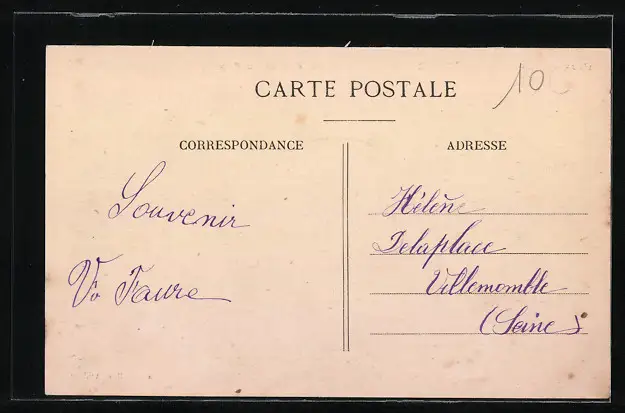 CARTE POSTALE
10
CORRESPONDANCE
ADRESSE
Souvenir
Vo Faure
Hélène
Delaplace
Villemomble
(Seine)